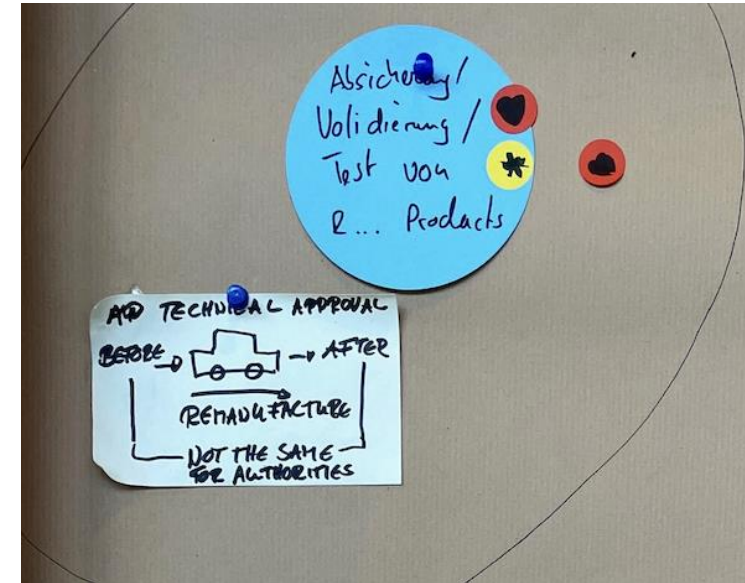 Absicherung/
Validierung/
Test von
R... Products
TECHNICAL APPROVAL
BEFORE → → AFTER
REMANUFACTURE
NOT THE SAME
FOR AUTHORITIES